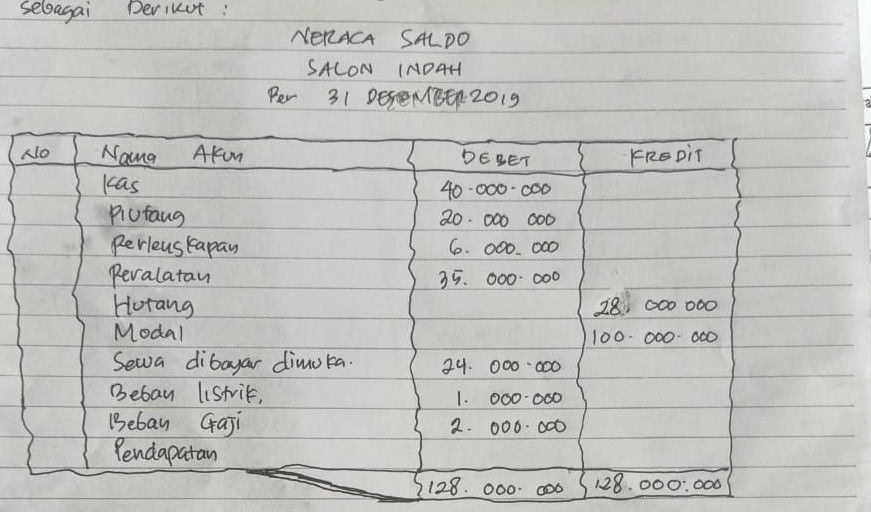 sebagai berikut :
NERACA SALDO
SALON INDAH
Per 31 DESEMBER 2019
NO Nama Akun DEBET KREDIT
Kas 40.000.000
Piutang 20.000 000
Perlengkapan 6.000.000
Peralatan 35.000.000
Hutang 28. 000 000
Modal 100.000.000
Sewa dibayar dimuka. 24.000.000
Beban listrik, 1.000.000
Beban Gaji 2.000.000
Pendapatan
128.000.000 128.000.000